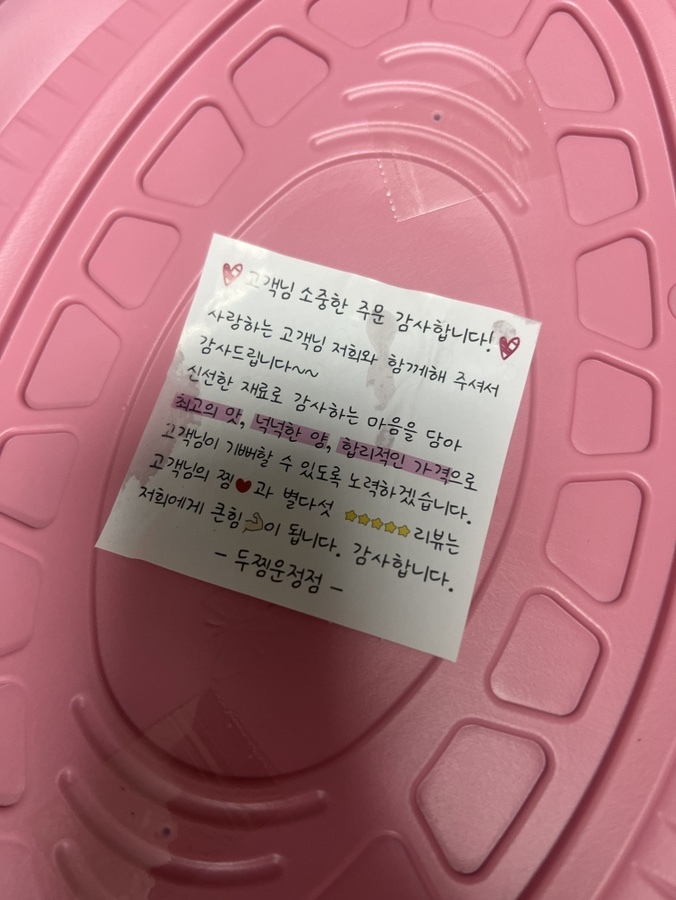 고객님 소중한 주문 감사합니다!
사랑하는 고객님 저희와 함께해 주셔서
감사드립니다~~
신선한 재료로 감사하는 마음을 담아
최고의 맛, 넉넉한 양, 합리적인 가격으로
고객님이 기뻐할 수 있도록 노력하겠습니다.
고객님의 찜❤️과 별다섯 ⭐⭐⭐⭐⭐리뷰는
저희에게 큰힘💪이 됩니다. 감사합니다.
- 두찜운정점 -